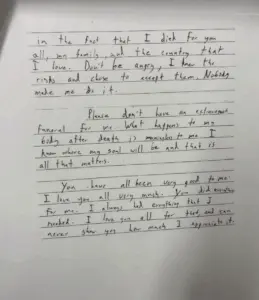 in the fact that I died for you
all, my family, and the country that
I love. Don't be angry, I knew the
risks and chose to accept them. Nobody
made me do it.
Please don't have an extravagant
funeral for me. What happens to my
body after death is meaningless to me. I
know where my soul will be and that is
all that matters.
You have all been very good to me.
I love you all very much. You did everything
for me. I always had everything that I
needed. I love you all for that and can
never show you how much I appreciate it.